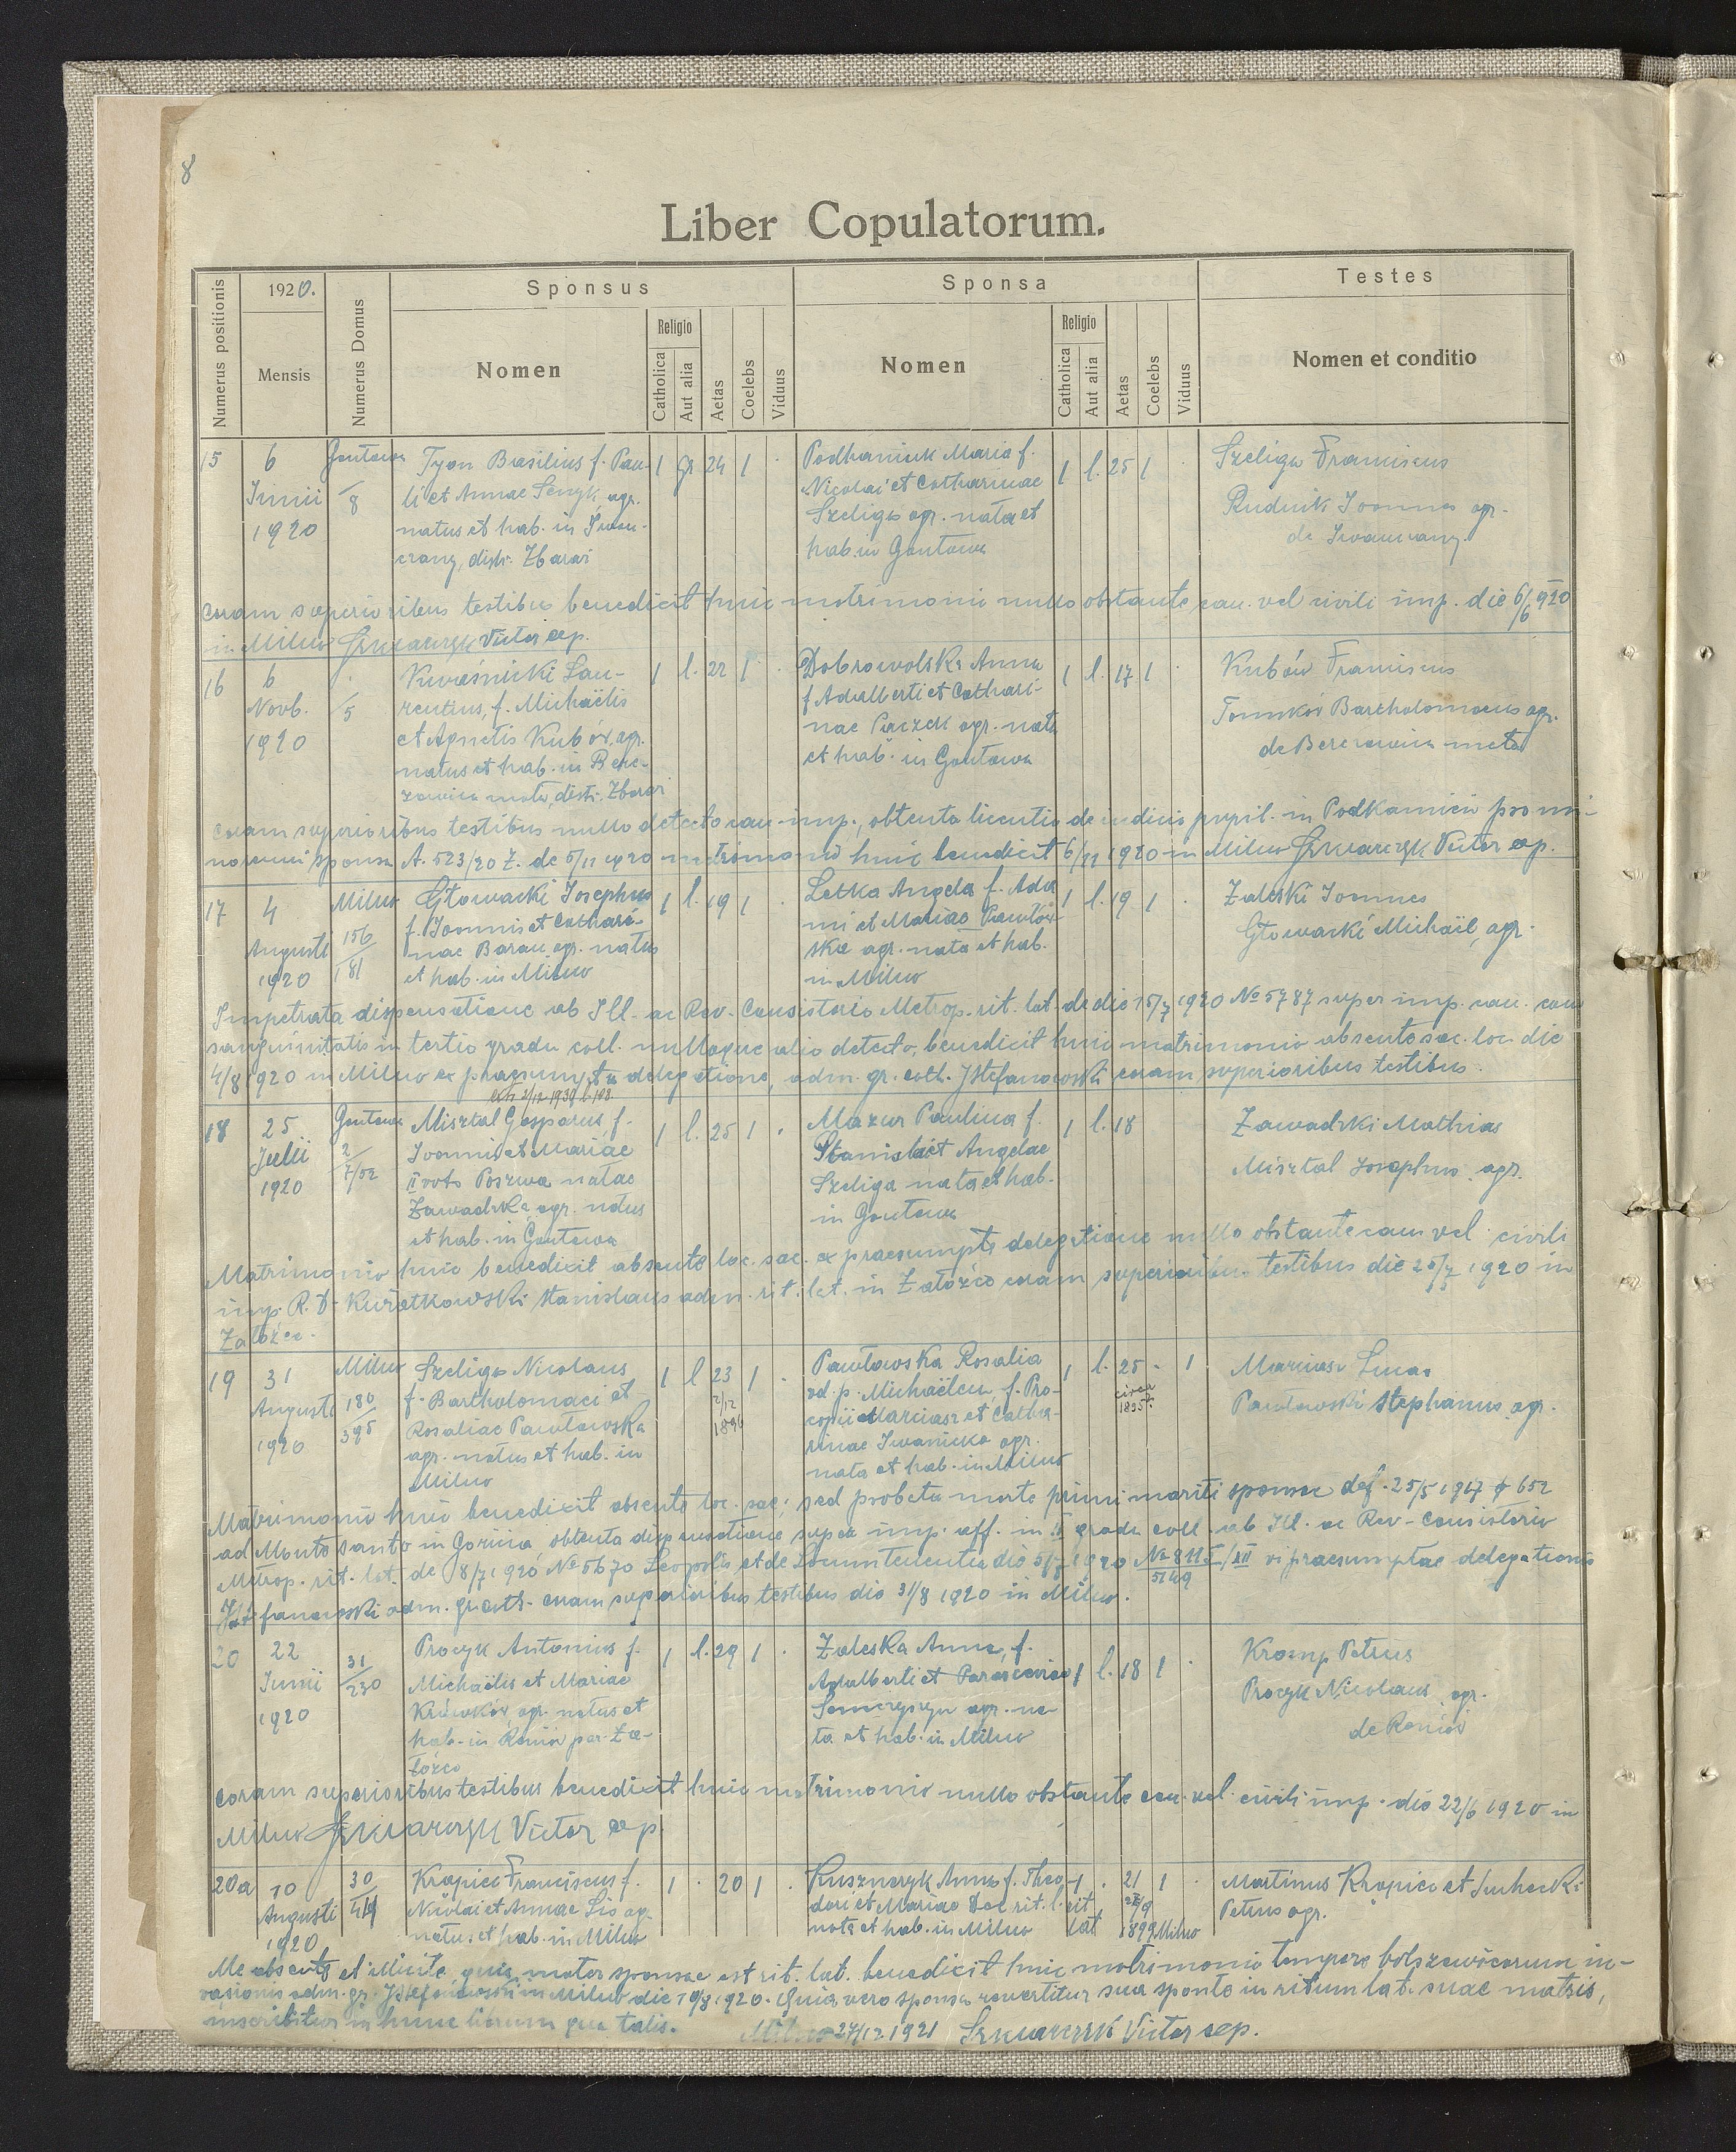 8
Liber Copulatorum.
Numerus positionis
1920.
Mensis
Numerus Domus
Sponsus
Nomen
Religio
Catholica
Aut alia
Aetas
Coelebs
Viduus
Sponsa
Nomen
Religio
Catholica
Aut alia
Aetas
Coelebs
Viduus
Testes
Nomen et conditio
15
6
Junii
1920
Gontowa
8
Tyon Basilius f. Pau-
li et Annae Senyk agr.
natus et hab. in Iwan-
czany, distr. Zbaraż
1 gr. 24 1
Podhaniuk Maria f.
Nicolai et Catharinae
Szeliga agr. nata et
hab. in Gontowa
1 l. 25 1
Szeliga Franciscus
Rudnik Joannes agr.
de Iwanczany.
Coram superioribus testibus benedixit huic matrimonio nullo obstante can. vel civili imp. die 6/6 920
in Milno Szkwarczyk Victor exp.
16
6
Novb.
1920
5
Kwaśnicki Lau-
rentius, f. Michaëlis
et Agnetis Kubów, agr.
natus et hab. in Bere-
zowica mała, distr. Zbaraż
1 l. 22 1
Dobrowolska Anna
f. Adalberti et Cathari-
nae Paczek agr. nata
et hab. in Gontowa
1 l. 17 1
Kubów Franciscus
Tomków Bartholomaeus agr.
de Berezowica mała
Coram superioribus testibus nullo detecto can. imp., obtenta licentia de iudicio pupil. in Podkamień pro mi-
norenni sponsa A. 523/20 Z. de 5/11 1920 matrimonio huic benedixit 6/11 1920 in Milno Szkwarczyk Victor exp.
17
4
Augusti
1920
Milno
156
181
Głowacki Josephus
f. Joannis et Cathari-
nae Baran, agr. natus
et hab. in Milno
1 l. 19 1
Letka Angela f. Ada
mi et Mariae Pawłow-
ska agr. nata et hab.
in Milno
1 l. 19 1
Zaleski Joannes
Głowacki Michaël, agr.
Impetrata dispensatione ab Ill. ac Rev. Consistorio Metrop. rit. lat. de die 15/7 1920 № 5787 super imp. can. con
sanguinitatis in tertio gradu coll. nulloque alio detecto, benedixit huic matrimonio absente sac. loc. die
4/8 1920 in Milno ex praesumpta delegatione, adm. gr. cath. J Stefanowski coram superioribus testibus.
18
25
Julii
1920
Gontowa
2
7/52
Misztal Gasparus f.
Joannis et Mariae
II voto Poszwa natae
Zawadzka, agr. natus
et hab. in Gontowa
1 l. 25 1
Mazur Paulina f.
Stanislai et Angelae
Szeliga nata et hab.
in Gontowa
1 l. 18
Zawadzki Mathias
Misztal Josephus, agr.
Matrimonio huic benedixit absente loc. sac. ex praesumpta delegatione nullo obstante can vel civili
imp. R. D. Kwiatkowski Stanislaus adm. rit. lat. in Załoźce coram superioribus testibus die 25/7 1920 in
Załoźce.
19
31
Augusti
1920
Milno
180
395
Szeliga Nicolaus
f. Bartholomaei et
Rosaliae Pawłowska
agr. natus et hab. in
Milno
1 l 23 1
2/12
1896
Pawłowska Rosalia
vd. p. Michaëlem, f. Pro-
copii Marciasz et Catha-
rinae Iwanicka agr.
nata et hab. in Milno
1 l. 25 - 1
circa
1895
Marciasz Lucas
Pawłowski Stephanus agr.
Matrimonio huic benedixit absente loc. sac., sed probata morte primi mariti sponsae def. 25/5 1917 652
ad Monte santo in Gorizia obtenta dispensatione super imp. aff. in II gradu coll. ab Ill. ac Rev. Consistorio
Metrop. rit. lat. de 8/7 1920 № 5670 Leopolis et de Locumtenentia die 5/7 1920 № 811 /XII vi praesumptae delegationis
5149
J Stefanowski adm. gr. cath. coram superioribus testibus die 31/8 1920 in Milno.
20
22
Junii
1920
31
230
Procyk Antonius f.
Michaëlis et Mariae
Krówków, agr. natus et
hab. in Reniów par. Za-
łoźce
1 l. 29 1
Zaleska Anna, f.
Adalberti et Parascevae
agr. na-
ta et hab. in Milno
1 l. 18 1
Kromp Petrus
Procyk Nicolaus, agr.
de Reniów
Coram superioribus testibus benedixit huic matrimonio nullo obstante can. vel civili imp. die 22/6 1920 in
Milno Szkwarczyk Victor exp
20a
10
Augusti
1920
30
Kropica Franciscus f.
Nicolai et Annae Lis agr.
natus et hab. in Milno
1 20 1
Kusznczyk Anna f. Theo-
dori et Mariae Dec rit. l.
nata et hab. in Milno
1 rit lat
21 1
1899 Milno
Martinus Kropica et Suchecki
Petrus agr.
Me absente et illicite, quia mater sponsae est rit. lat. benedixit huic matrimonio tempore bolszewicorum in-
vasionis adm. gr. J Stefanowski in Milno die 10/8 1920. Quia vero sponsa revertitur sua sponte in ritum lat. suae matris,
inscribitur in hunc librum qua talis. Milno 27/12 1921 Szkwarczyk Victor exp.